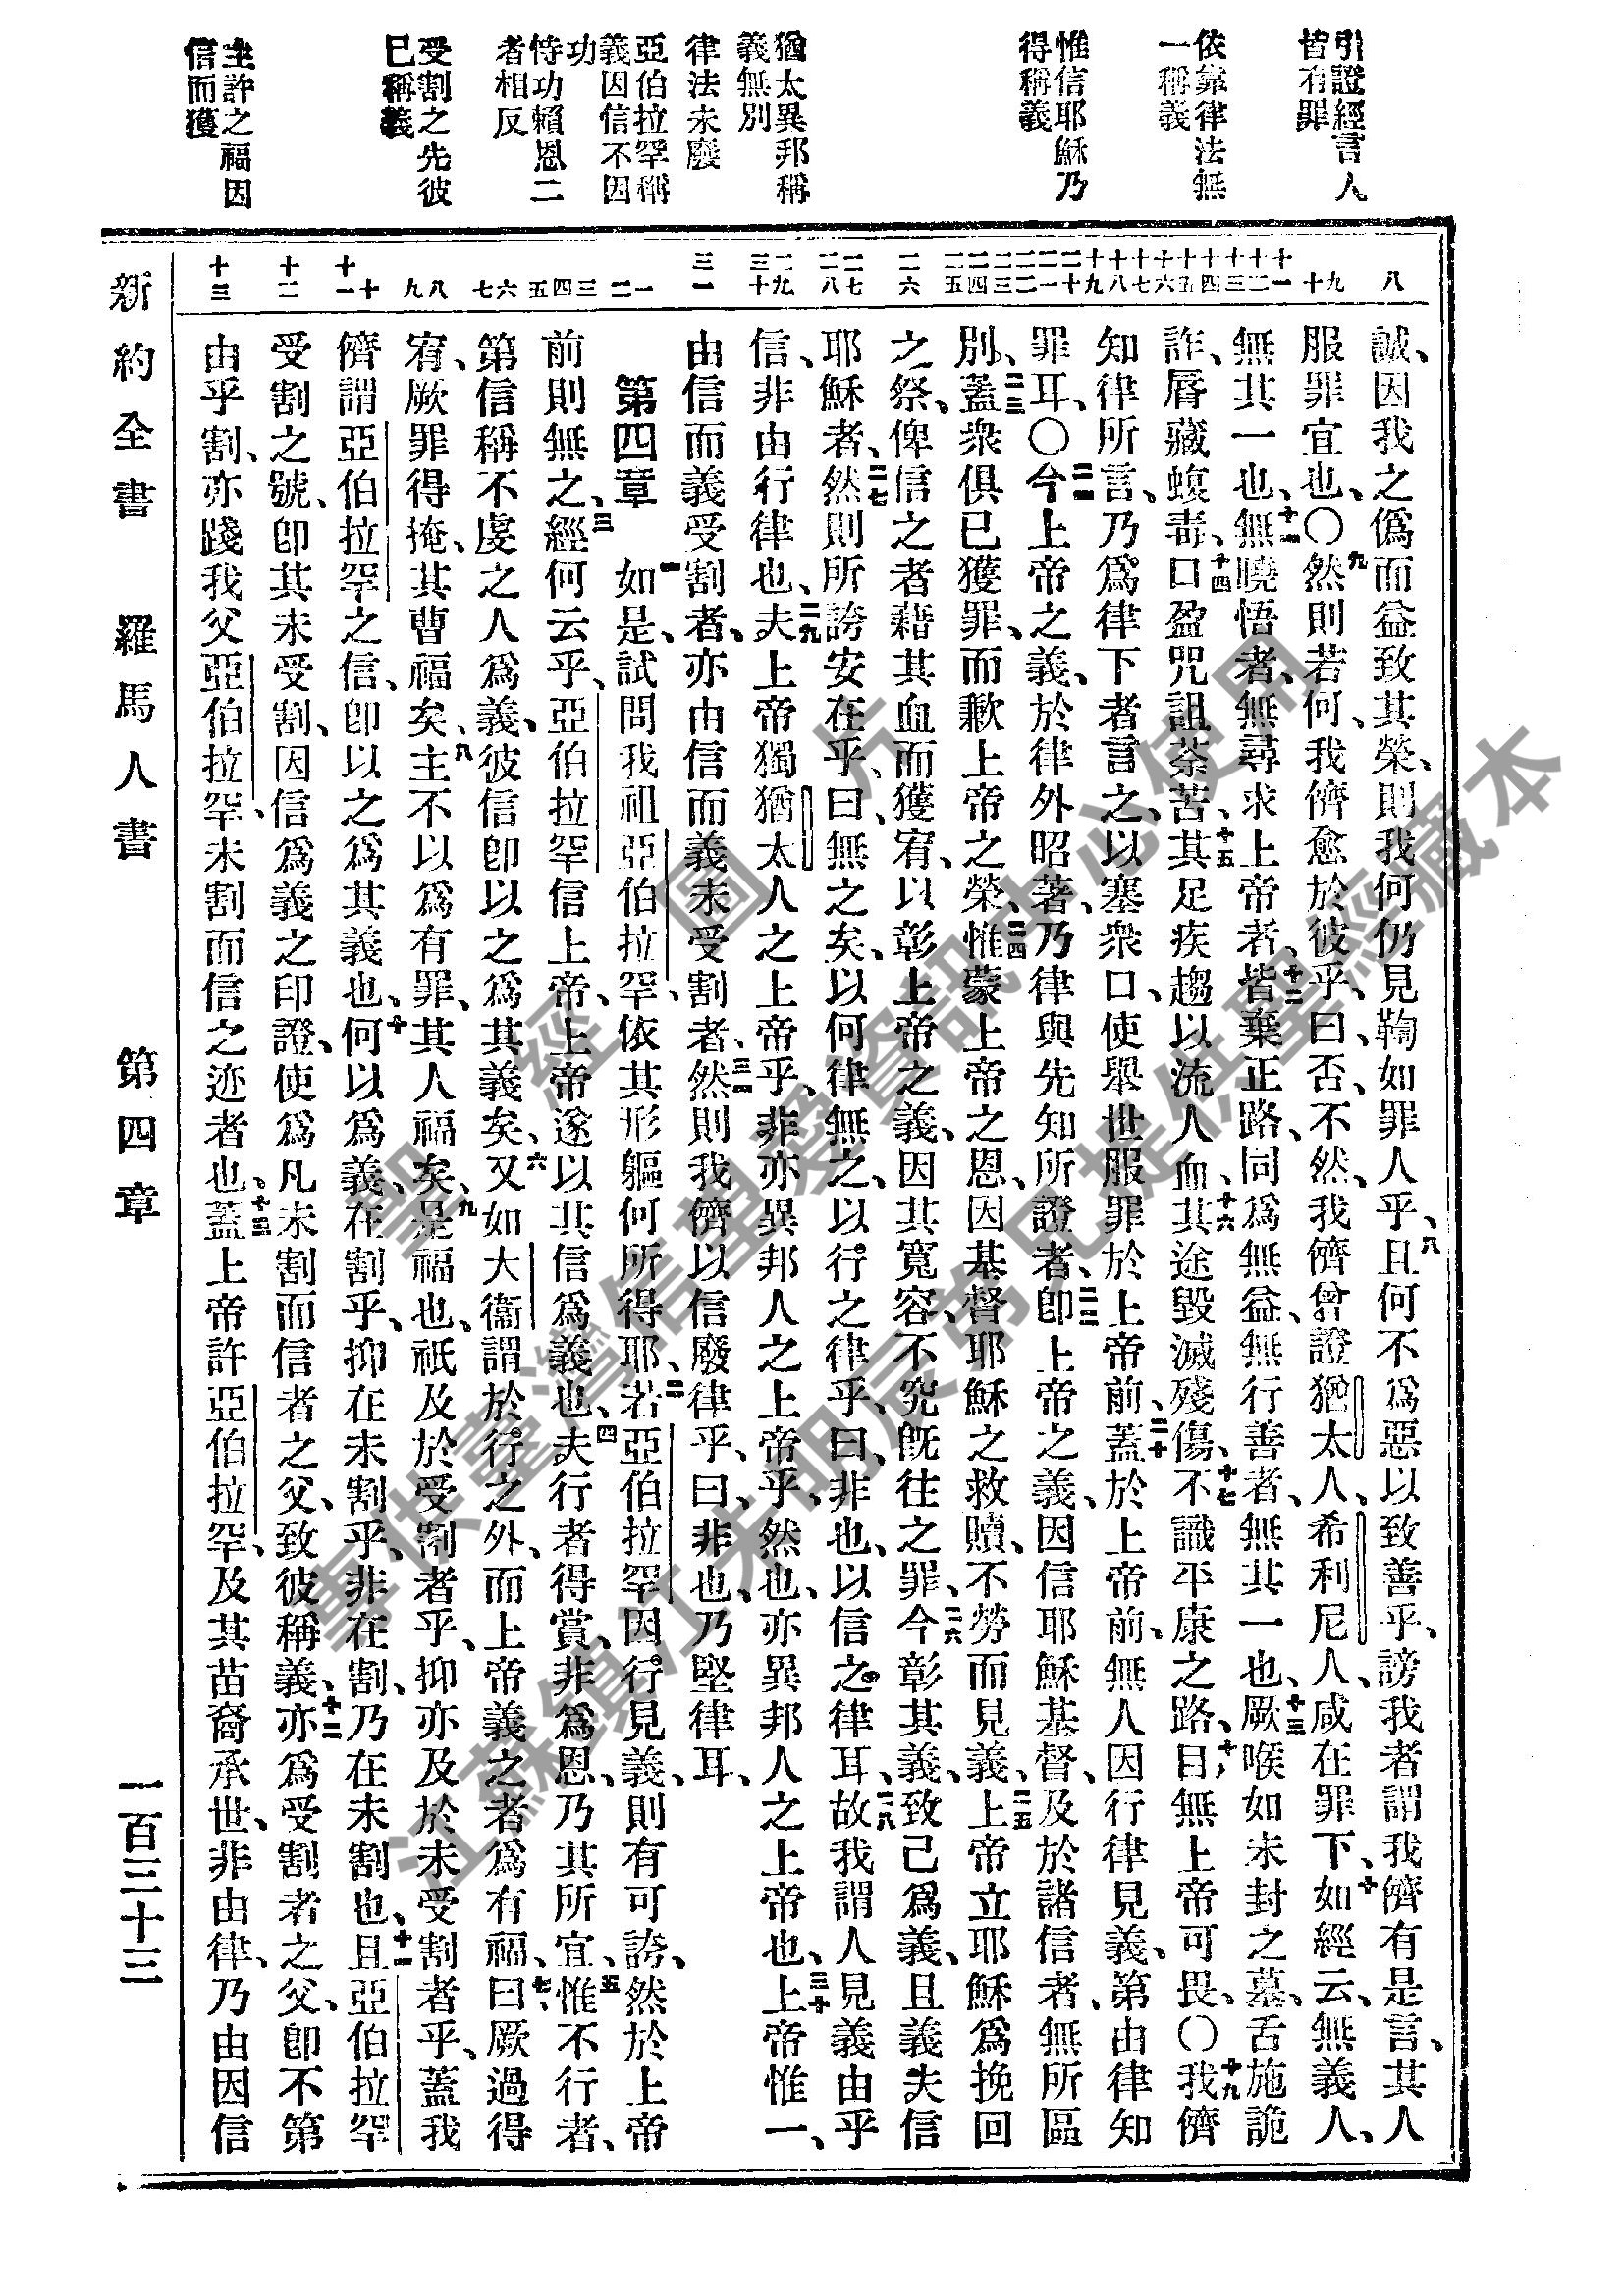 引證經言人
皆有罪
依靠律法無
一稱義
惟信耶穌乃
得稱義
猶太異邦稱
義無別
律法未廢
亞伯拉罕稱
義因信不因
功
恃功賴恩二
者相反
受割之先彼
已稱義
主許之福因
信而獲
八
九 十
十一 十二 十三
十四 十五 十六 十七 十八
十九 二十 二一 二二
二三 二四 二五
二六
二七 二八
二九 三十
三一
一 二
三 四 五
六 七
八 九
十 十一
十二
十三
誠、因我之僞而益致其榮、則我何仍見鞫如罪人乎、八且何不爲惡以致善乎、謗我者謂我儕有是言、其人
服罪宜也、〇九然則若何、我儕愈於彼乎、曰否、不然、我儕曾證猶太人、希利尼人、咸在罪下、十如經云、無義人、
無其一也、十一無曉悟者、無尋求上帝者、十二皆棄正路、同爲無益、無行善者、無其一也、十三厥喉如未封之墓、舌施詭
詐、脣藏蝮毒、十四口盈咒詛荼苦、十五其足疾趨以流人血、十六其途毀滅殘傷、十七不識平康之路、十八目無上帝可畏、〇十九我儕
知律所言、乃爲律下者言之、以塞衆口、使舉世服罪於上帝前、二十蓋於上帝前、無人因行律見義、第由律知
罪耳、〇二一今上帝之義、於律外昭著、乃律與先知所證者、二二卽上帝之義、因信耶穌基督、及於諸信者、無所區
別、二三蓋衆俱已獲罪、而歉上帝之榮、二四惟蒙上帝之恩、因基督耶穌之救贖、不勞而見義、二五上帝立耶穌爲挽回
之祭、俾信之者藉其血而獲宥、以彰上帝之義、因其寬容、不究旣往之罪、二六今彰其義、致己爲義、且義夫信
耶穌者、二七然則所誇安在乎、曰、無之矣、以何律無之、以行之律乎、曰、非也、以信之律耳、二八故我謂人見義由乎
信、非由行律也、二九夫上帝獨猶太人之上帝乎、非亦異邦人之上帝乎、然也、亦異邦人之上帝也、三十上帝惟一、
由信而義受割者、亦由信而義未受割者、三一然則我儕以信廢律乎、曰、非也、乃堅律耳、
第四章 一如是、試問我祖亞伯拉罕、依其形軀何所得耶、二若亞伯拉罕因行見義、則有可誇、然於上帝
前則無之、三經何云乎、亞伯拉罕信上帝、上帝遂以其信爲義也、四夫行者得賞、非爲恩、乃其所宜、五惟不行者、
第信稱不虔之人爲義、彼信卽以之爲其義矣、六又如大衞謂於行之外、而上帝義之者爲有福、七曰、厥過得
宥、厥罪得掩、其曹福矣、八主不以爲有罪、其人福矣、九是福也、祇及於受割者乎、抑亦及於未受割者乎、蓋我
儕謂亞伯拉罕之信、卽以之爲其義也、十何以爲義、在割乎、抑在未割乎、非在割、乃在未割也、十一且亞伯拉罕
受割之號、卽其未受割、因信爲義之印證、使爲凡未割而信者之父、致彼稱義、十二亦爲受割者之父、卽不第
由乎割、亦踐我父亞伯拉罕、未割而信之迹者也、十三蓋上帝許亞伯拉罕、及其苗裔承世、非由律、乃由因信
新約全書 羅馬人書 第四章 一百三十三
聖經圖片
專供臺灣信望愛資訊中心使用
江蘇鎮江朱明辰弟兄提供聖經藏本